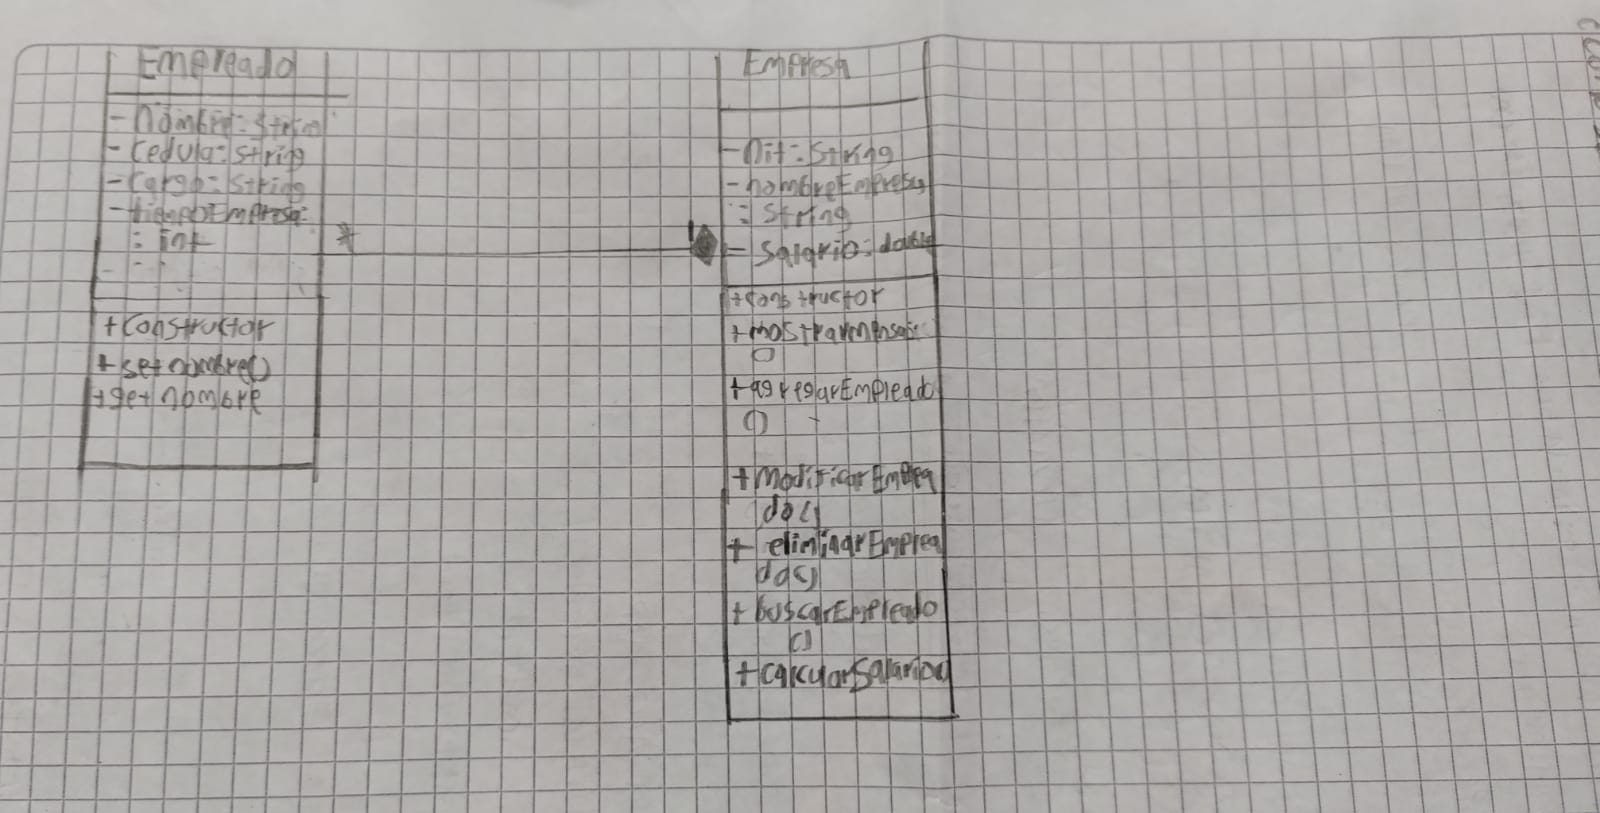 Empleado
- nombre: String
- cedula: String
- cargo: String
- tiempoEmpresa:
: int
*
+ constructor
+ set nombre()
+ get nombre
Empresa
- nit: String
- nombreEmpresa
: String
- Salario: double
+ constructor
+ mostrarMensaje
()
+ agregarEmpleado
()
+ modificarEmplea
do()
+ eliminarEmplea
do()
+ buscarEmpleado
()
+ calcularSalario()